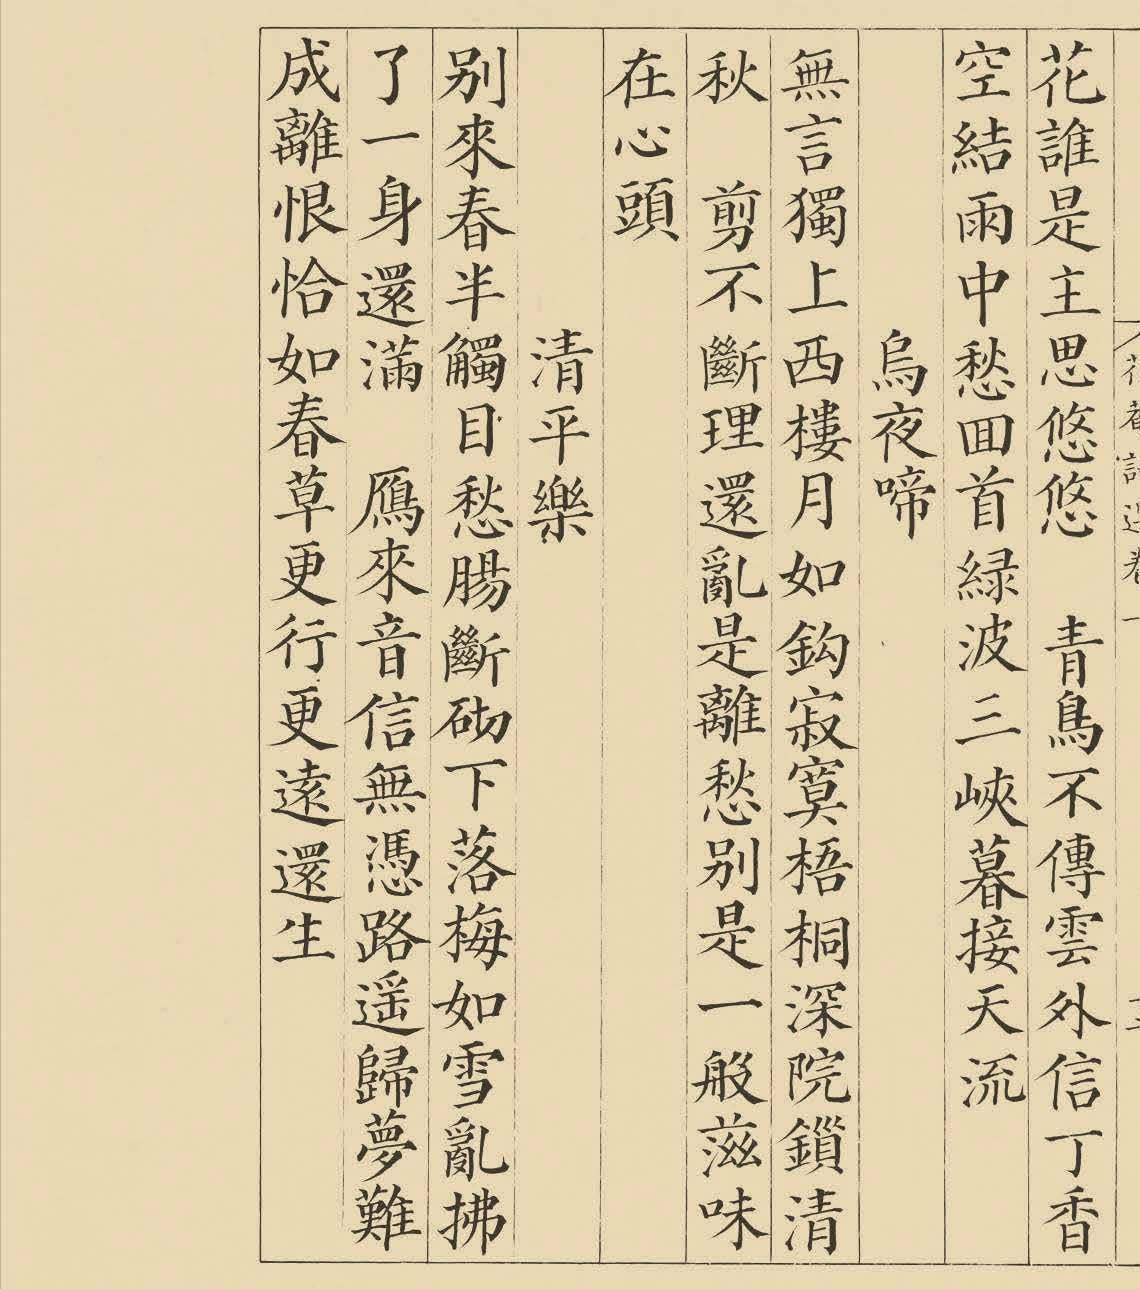 花菴詞選卷一
花誰是主思悠悠　青鳥不傳雲外信丁香
空結雨中愁囬首緑波三峽暮接天流
烏夜啼
無言獨上西樓月如鈎寂寞梧桐深院鎖清
秋　剪不斷理還亂是離愁别是一般滋味
在心頭
清平樂
别來春半觸目愁腸斷砌下落梅如雪亂拂
了一身還滿　鴈來音信無憑路遥歸夢難
成離恨恰如春草更行更逺還生